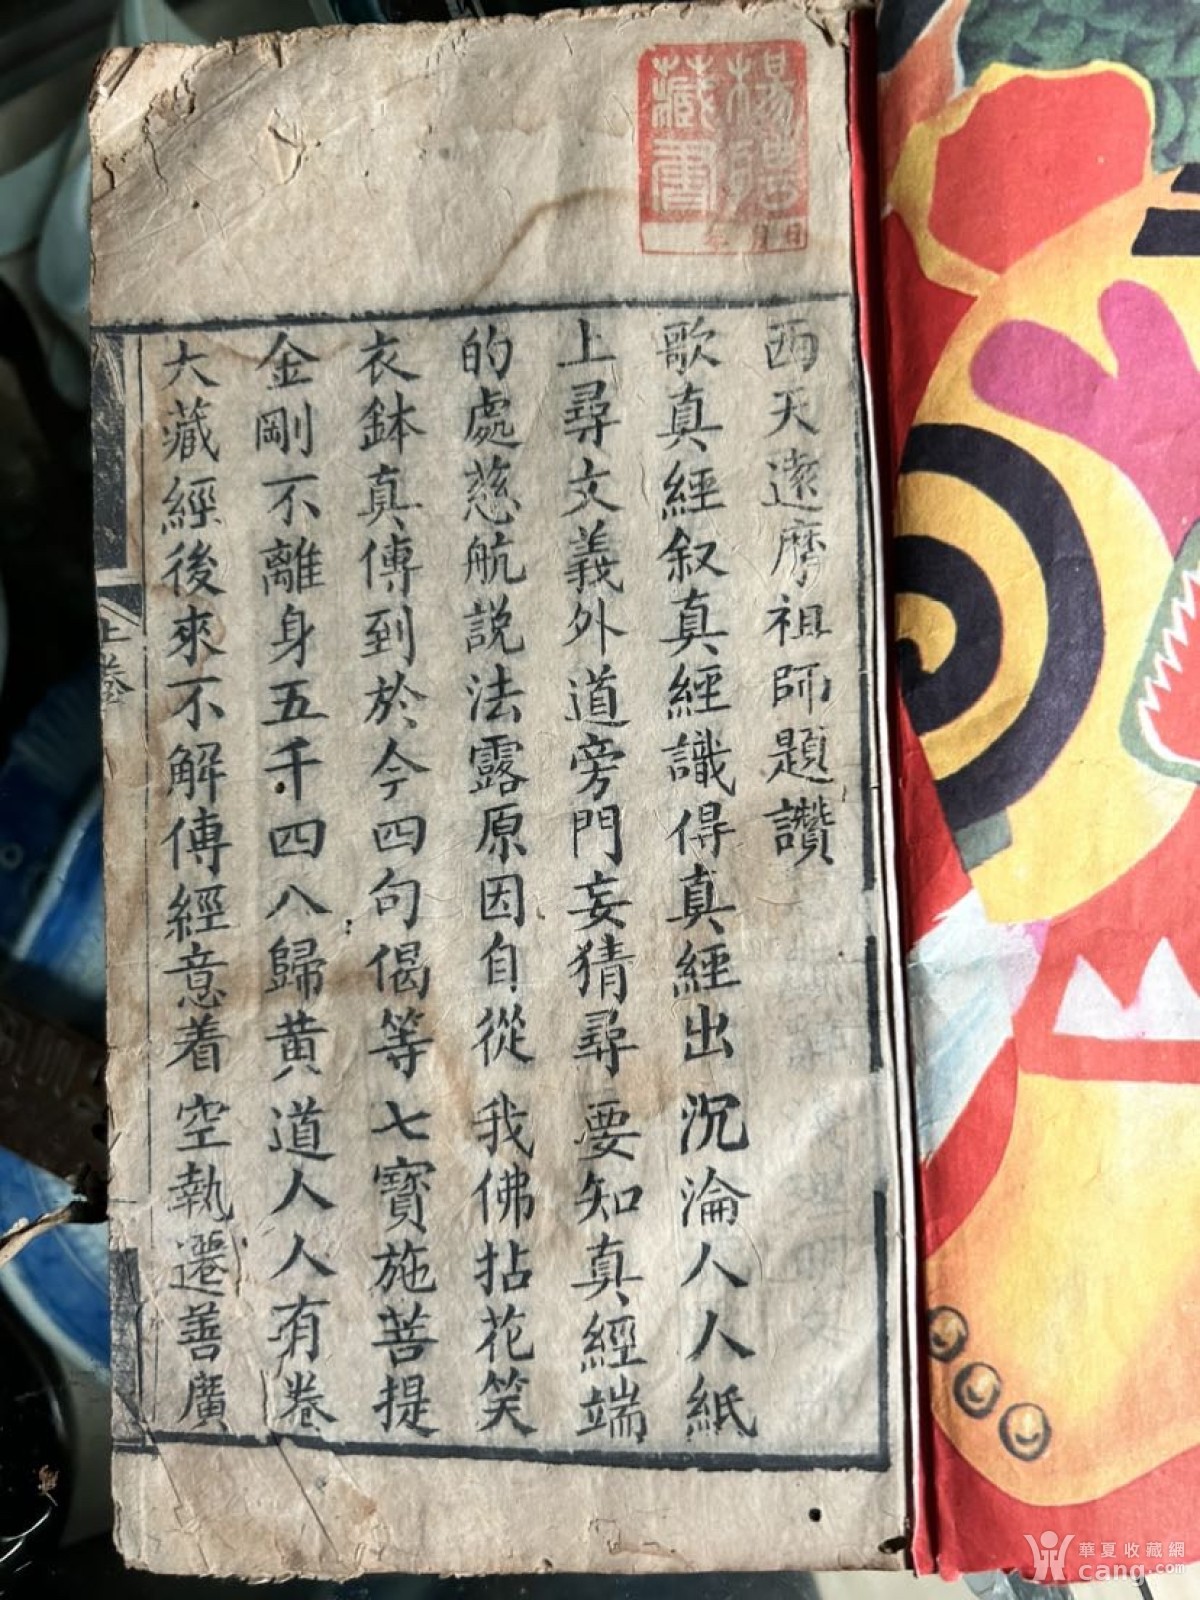 西天達摩祖師題讚
歌真經叙真經識得真經出沉淪人人紙
上尋文義外道旁門妄猜尋要知真經端
的處慈航說法露原因自從我佛拈花笑
衣鉢真傳到於今四句偈等七寶施菩提
金剛不離身五千四八歸黃道人人有卷
大藏經後來不解傳經意着空執遷善廣
上卷
藏書
年月日
華夏收藏網
cang.com